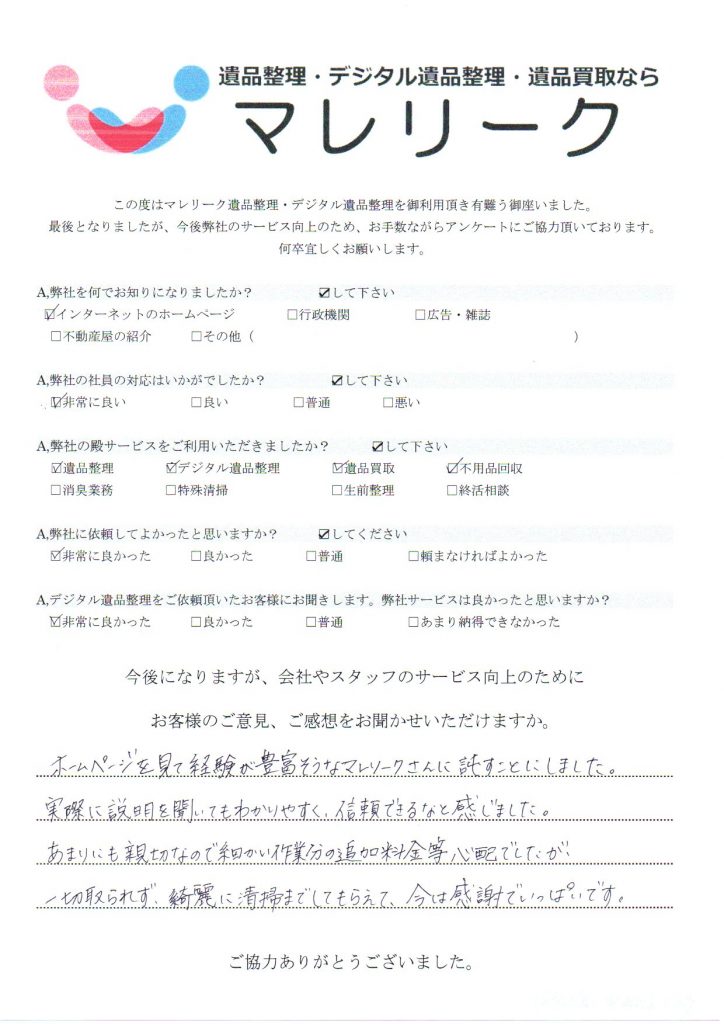 遺品整理・デジタル遺品整理・遺品買取なら
マレリーク
この度はマレリーク遺品整理・デジタル遺品整理を御利用頂き有難う御座いました。
最後となりましたが、今後弊社のサービス向上のため、お手数ながらアンケートにご協力頂いております。
何卒宜しくお願いします。
A,弊社を何でお知りになりましたか？ ☑して下さい
☑インターネットのホームページ □行政機関 □広告・雑誌
□不動産屋の紹介 □その他（ ）
A,弊社の社員の対応はいかがでしたか？ ☑して下さい
☑非常に良い □良い □普通 □悪い
A,弊社の殿サービスをご利用いただきましたか？ ☑して下さい
☑遺品整理 ☑デジタル遺品整理 ☑遺品買取 ☑不用品回収
□消臭業務 □特殊清掃 □生前整理 □終活相談
A,弊社に依頼してよかったと思いますか？ ☑してください
☑非常に良かった □良かった □普通 □頼まなければよかった
A,デジタル遺品整理をご依頼頂いたお客様にお聞きします。弊社サービスは良かったと思いますか？
☑非常に良かった □良かった □普通 □あまり納得できなかった
今後になりますが、会社やスタッフのサービス向上のために
お客様のご意見、ご感想をお聞かせいただけますか。
ホームページを見て経験が豊富そうなマレリークさんに託すことにしました。
実際に説明を聞いてもわかりやすく、信頼できるなと感じました。
あまりにも親切なので細かい作業分の追加料金等心配でしたが
一切取られず、綺麗に清掃までしてもらえて、今は感謝でいっぱいです。
ご協力ありがとうございました。